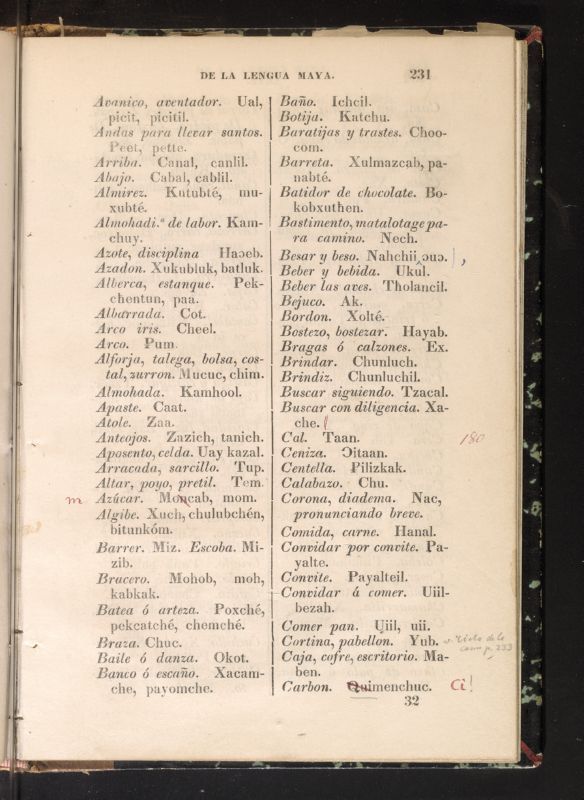 DE LA LENGUA MAYA. 231
Avanico, aventador. Ual,
picit, picitil.
Andas para llevar santos.
Peet, pette.
Arriba. Canal, canlil.
Abajo. Cabal, cablil.
Almirez. Kutubté, mu-
xubté.
Almohadi.ª de labor. Kam-
chuy.
Azote, disciplina Haɔeb.
Azadon. Xukubluk, batluk.
Alberca, estanque. Pek-
chentun, paa.
Albarrada. Cot.
Arco iris. Cheel.
Arco. Pum.
Alforja, talega, bolsa, cos-
tal, zurron. Mucuc, chim.
Almohada. Kamhool.
Apaste. Caat.
Atole. Zaa.
Anteojos. Zazich, tanich.
Aposento, celda. Uay kazal.
Arracada, sarcillo. Tup.
Altar, poyo, pretil. Tem.
m Azúcar. Moncab, mom.
Algibe. Xuch, chulubchén,
bitunkóm.
Barrer. Miz. Escoba. Mi-
zib.
Bracero. Mohob, moh,
kabkak.
Batea ó arteza. Poxché,
pekcatché, chemché.
Braza. Chuc.
Baile ó danza. Okot.
Banco ó escaño. Xacam-
che, payomche.
Baño. Ichcil.
Botija. Katchu.
Baratijas y trastes. Choo-
com.
Barreta. Xulmazcab, pa-
nabté.
Batidor de chocolate. Bo-
kobxuthen.
Bastimento, matalotage pa-
ra camino. Nech.
Besar y beso. Nahchii ɔuɔ. ,
Beber y bebida. Ukul.
Beber las aves. Tholancil.
Bejuco. Ak.
Bordon. Xolté.
Bostezo, bostezar. Hayab.
Bragas ó calzones. Ex.
Brindar. Chunluch.
Brindiz. Chunluchil.
Buscar siguiendo. Tzacal.
Buscar con diligencia. Xa-
che.
Cal. Taan. 180
Ceniza. Ɔitaan.
Centella. Pilizkak.
Calabazo. Chu.
Corona, diadema. Nac,
pronunciando breve.
Comida, carne. Hanal.
Convidar por convite. Pa-
yalte.
Convite. Payalteil.
Convidar á comer. Uiil-
bezah.
Comer pan. Uiil, uii.
Cortina, pabellon. Yub.
Caja, cofre, escritorio. Ma-
ben.
Carbon. Quimenchuc. Ci!
32